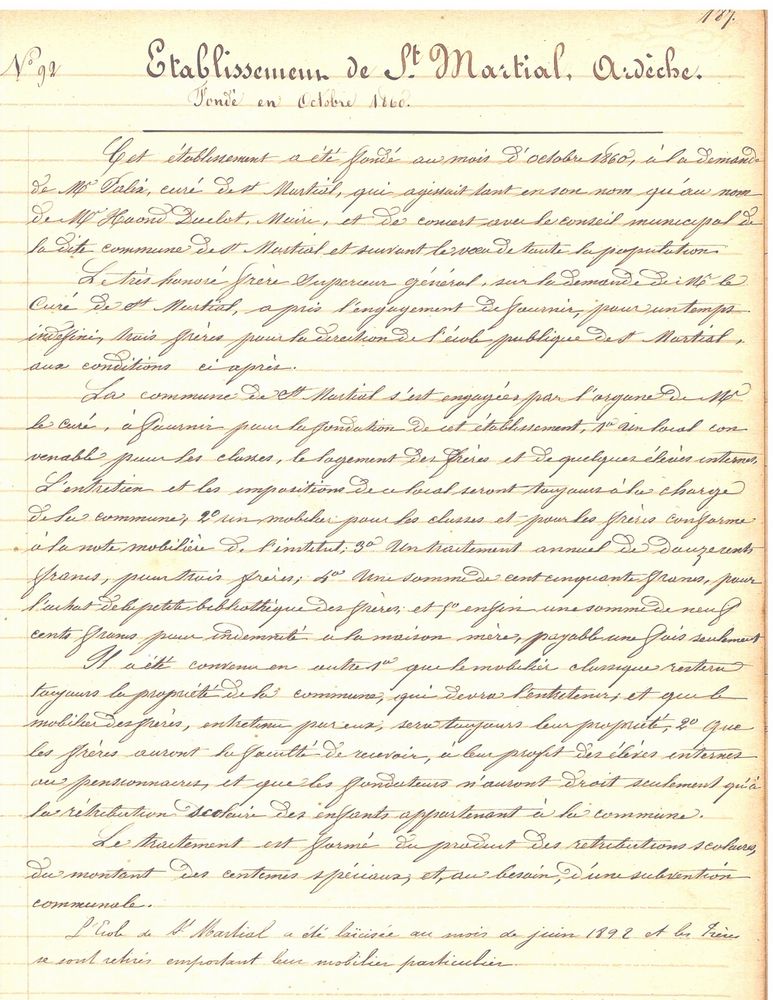 187.
N° 92
Etablissement de St Martial, Ardèche.
Fondé en Octobre 1860.
Cet établissement a été fondé au mois d'octobre 1860, à la demande
de Mr curé de St Martial, qui agissait tant en son nom qu'au nom
de Mr Haond Duclot, Maire, et de concert avec le conseil municipal de
la dite commune de St Martial et suivant le vœu de toute la population
Le très honoré frère Supérieur général, sur la demande de Mr le
Curé de St Martial, a pris l'engagement de fournir, pour un temps
indéfini, trois frères pour la direction de l'école publique de St Martial,
aux conditions ci après.
La commune de St Martial s'est engagée, par l'organe de Mr
le curé, à fournir pour la fondation de cet établissement, 1° un local con
venable pour les classes, le logement des frères et de quelques élèves internes.
L'entretien et les impositions de ce local seront toujours à la charge
de la commune; 2° un mobilier pour les classes et pour les frères conforme
à la note mobilière de l'institut; 3° Un traitement annuel de douze cents
francs, pour trois frères; 4° Une somme de cent cinquante francs, pour
l'achat de la petite bibliothèque des frères; et 5° enfin une somme de neuf
cents francs pour indemnité à la maison mère, payable une fois seulement
Il a été convenu en outre 1° que le mobilier classique restera
toujours la propriété de la commune, qui devra l'entretenir; et que le
mobilier des frères, entretenu par eux, sera toujours leur propriété; 2° Que
les frères auront la faculté de recevoir, à leur profit des élèves internes
ou pensionnaires, et que les fondateurs n'auront droit seulement qu'à
la rétribution scolaire des enfants appartenant à la commune.
Le traitement est formé du produit des retributions scolaires,
du montant des centimes spéciaux; et, au besoin, d'une subvention
communale.
L'Ecole de St Martial a été laïcisée au mois de juin 1892 et les Frères
se sont retirés emportant leur mobilier particulier